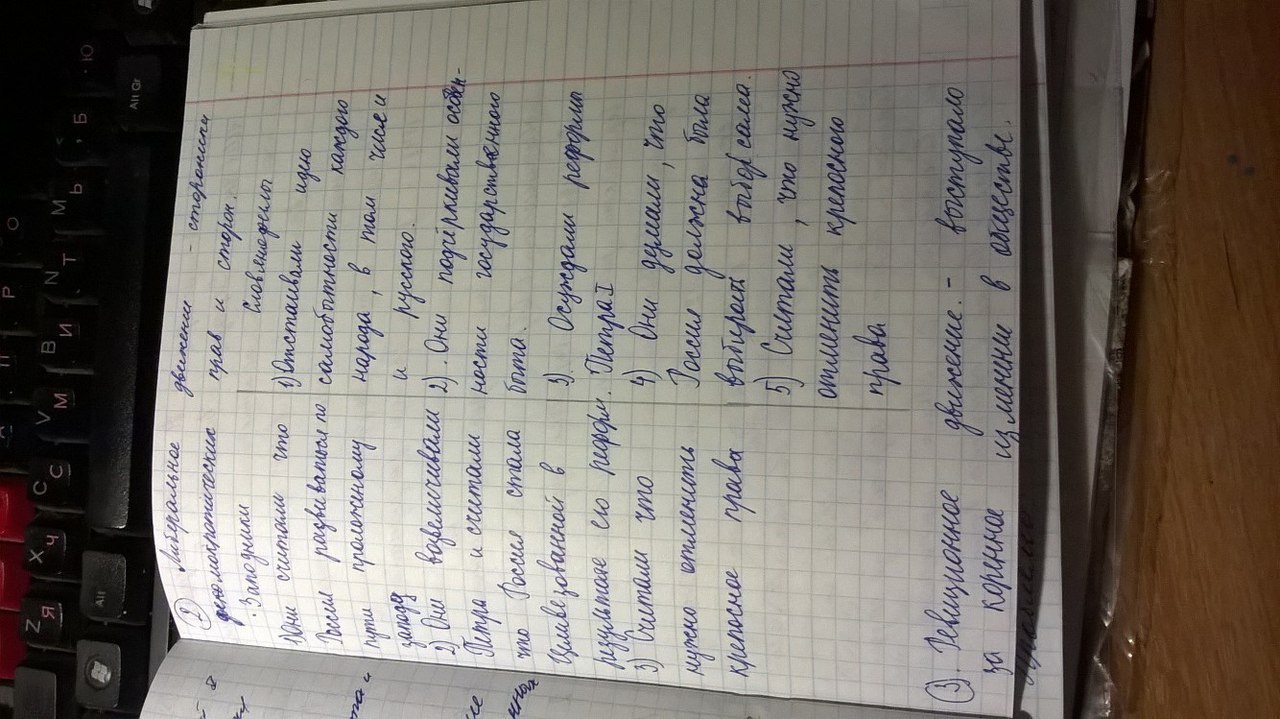 ② Либеральное движение - сторонники
демократических прав и сторон.
Западники
1) Они считали что
Россия развиваться по
проложному
пути
западу
2) Они возвеличивали
Петра и считали
что Россия стала
Цивилезованной в
результате его реформ.
3) Считали что
нужно отменить
крепосное права
Словянофилы
1) Отстаивали идю
самобытности каждого
народа, в том числе и
и русского.
2). Они подчёркивали особен-
ности государственного
быта.
3). Осуждали реформы
Петра I
4) Они думали, что
Россия должна была
выбирать выбор сама.
5) Считали, что нужно
отменить крепосного
права
③. Революционное движение. - выступало
за коренное изменини в обществе.
Alt Gr
Alt
Z Я
X Ч
C С
V М
B И
N Т
M Ь
Б
Ю